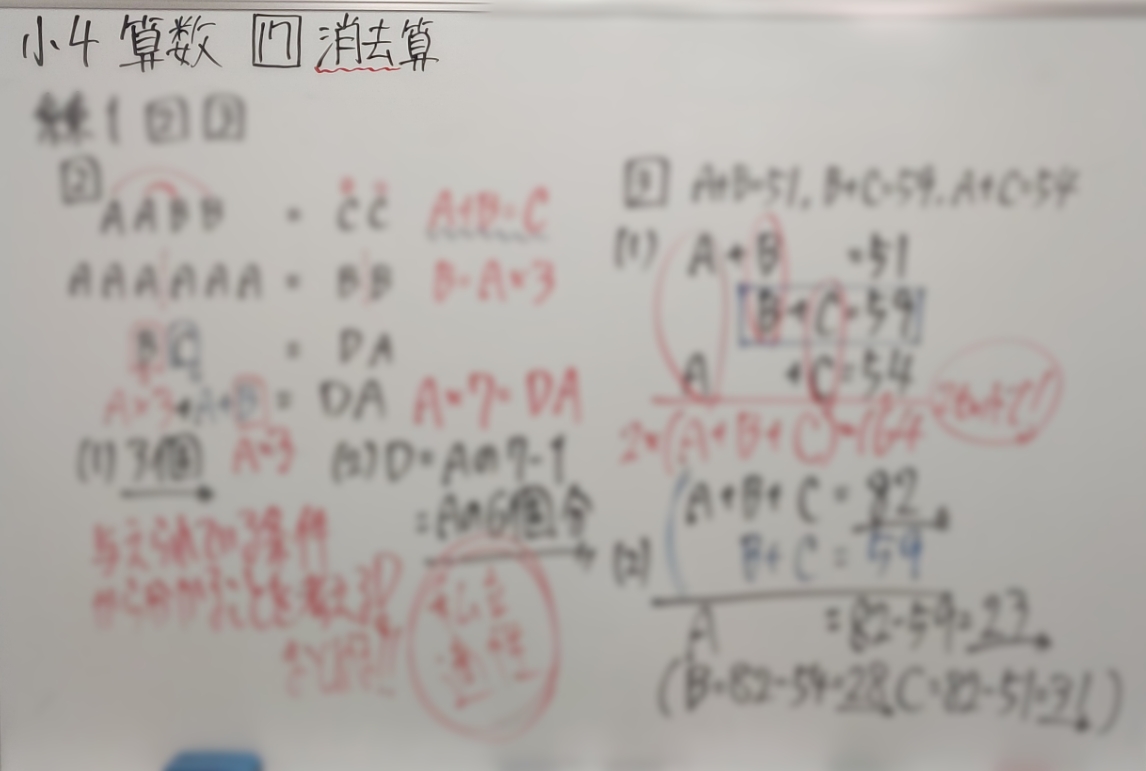 小4 算数 17 消去算
練1 2 3
2
AABB = CC A+B=C
AAAAAA = BB B=A×3
BC = DA
A×3+A+B = DA A×7=DA
(1) 3個 A×3 (2) D=Aの7-1
=Aの6個分
3 A+B=51, B+C=59, A+C=54
(1) A+B =51
B+C=59
A +C=54
2×(A+B+C)=164
A+B+C=82
(2) B+C=59
A =82-59=23
(B=82-54=28, C=82-51=31)